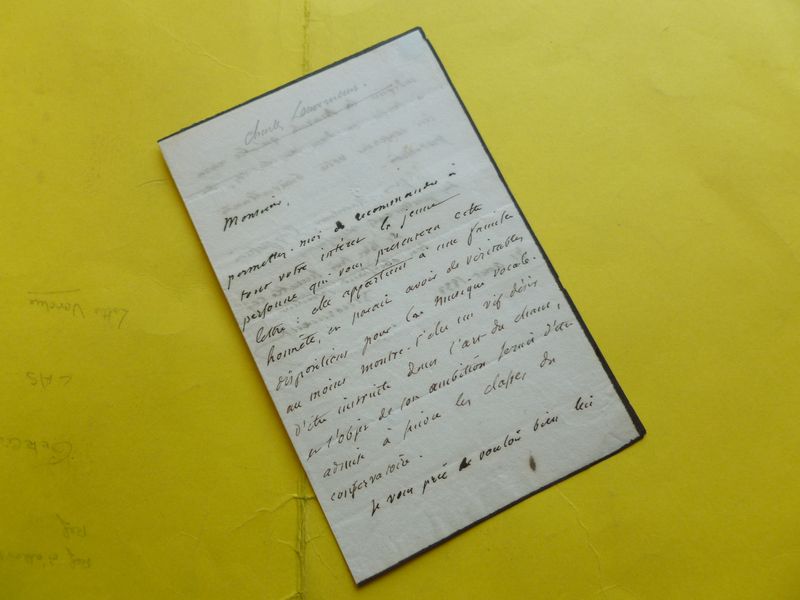 Charles
Monsieur,
permettez-moi de recommander à
tout votre intérêt la jeune
personne qui vous présentera cette
lettre : elle appartient à une famille
honnête, et paraît avoir de véritables
dispositions pour la musique vocale.
au moins montre-t'elle un vif désir
d'être instruite dans l'art du chant,
et l'objet de son ambition serait d'être
admise à suivre les classes du
conservatoire.
Je vous prie de vouloir bien lui
LAS
Ref